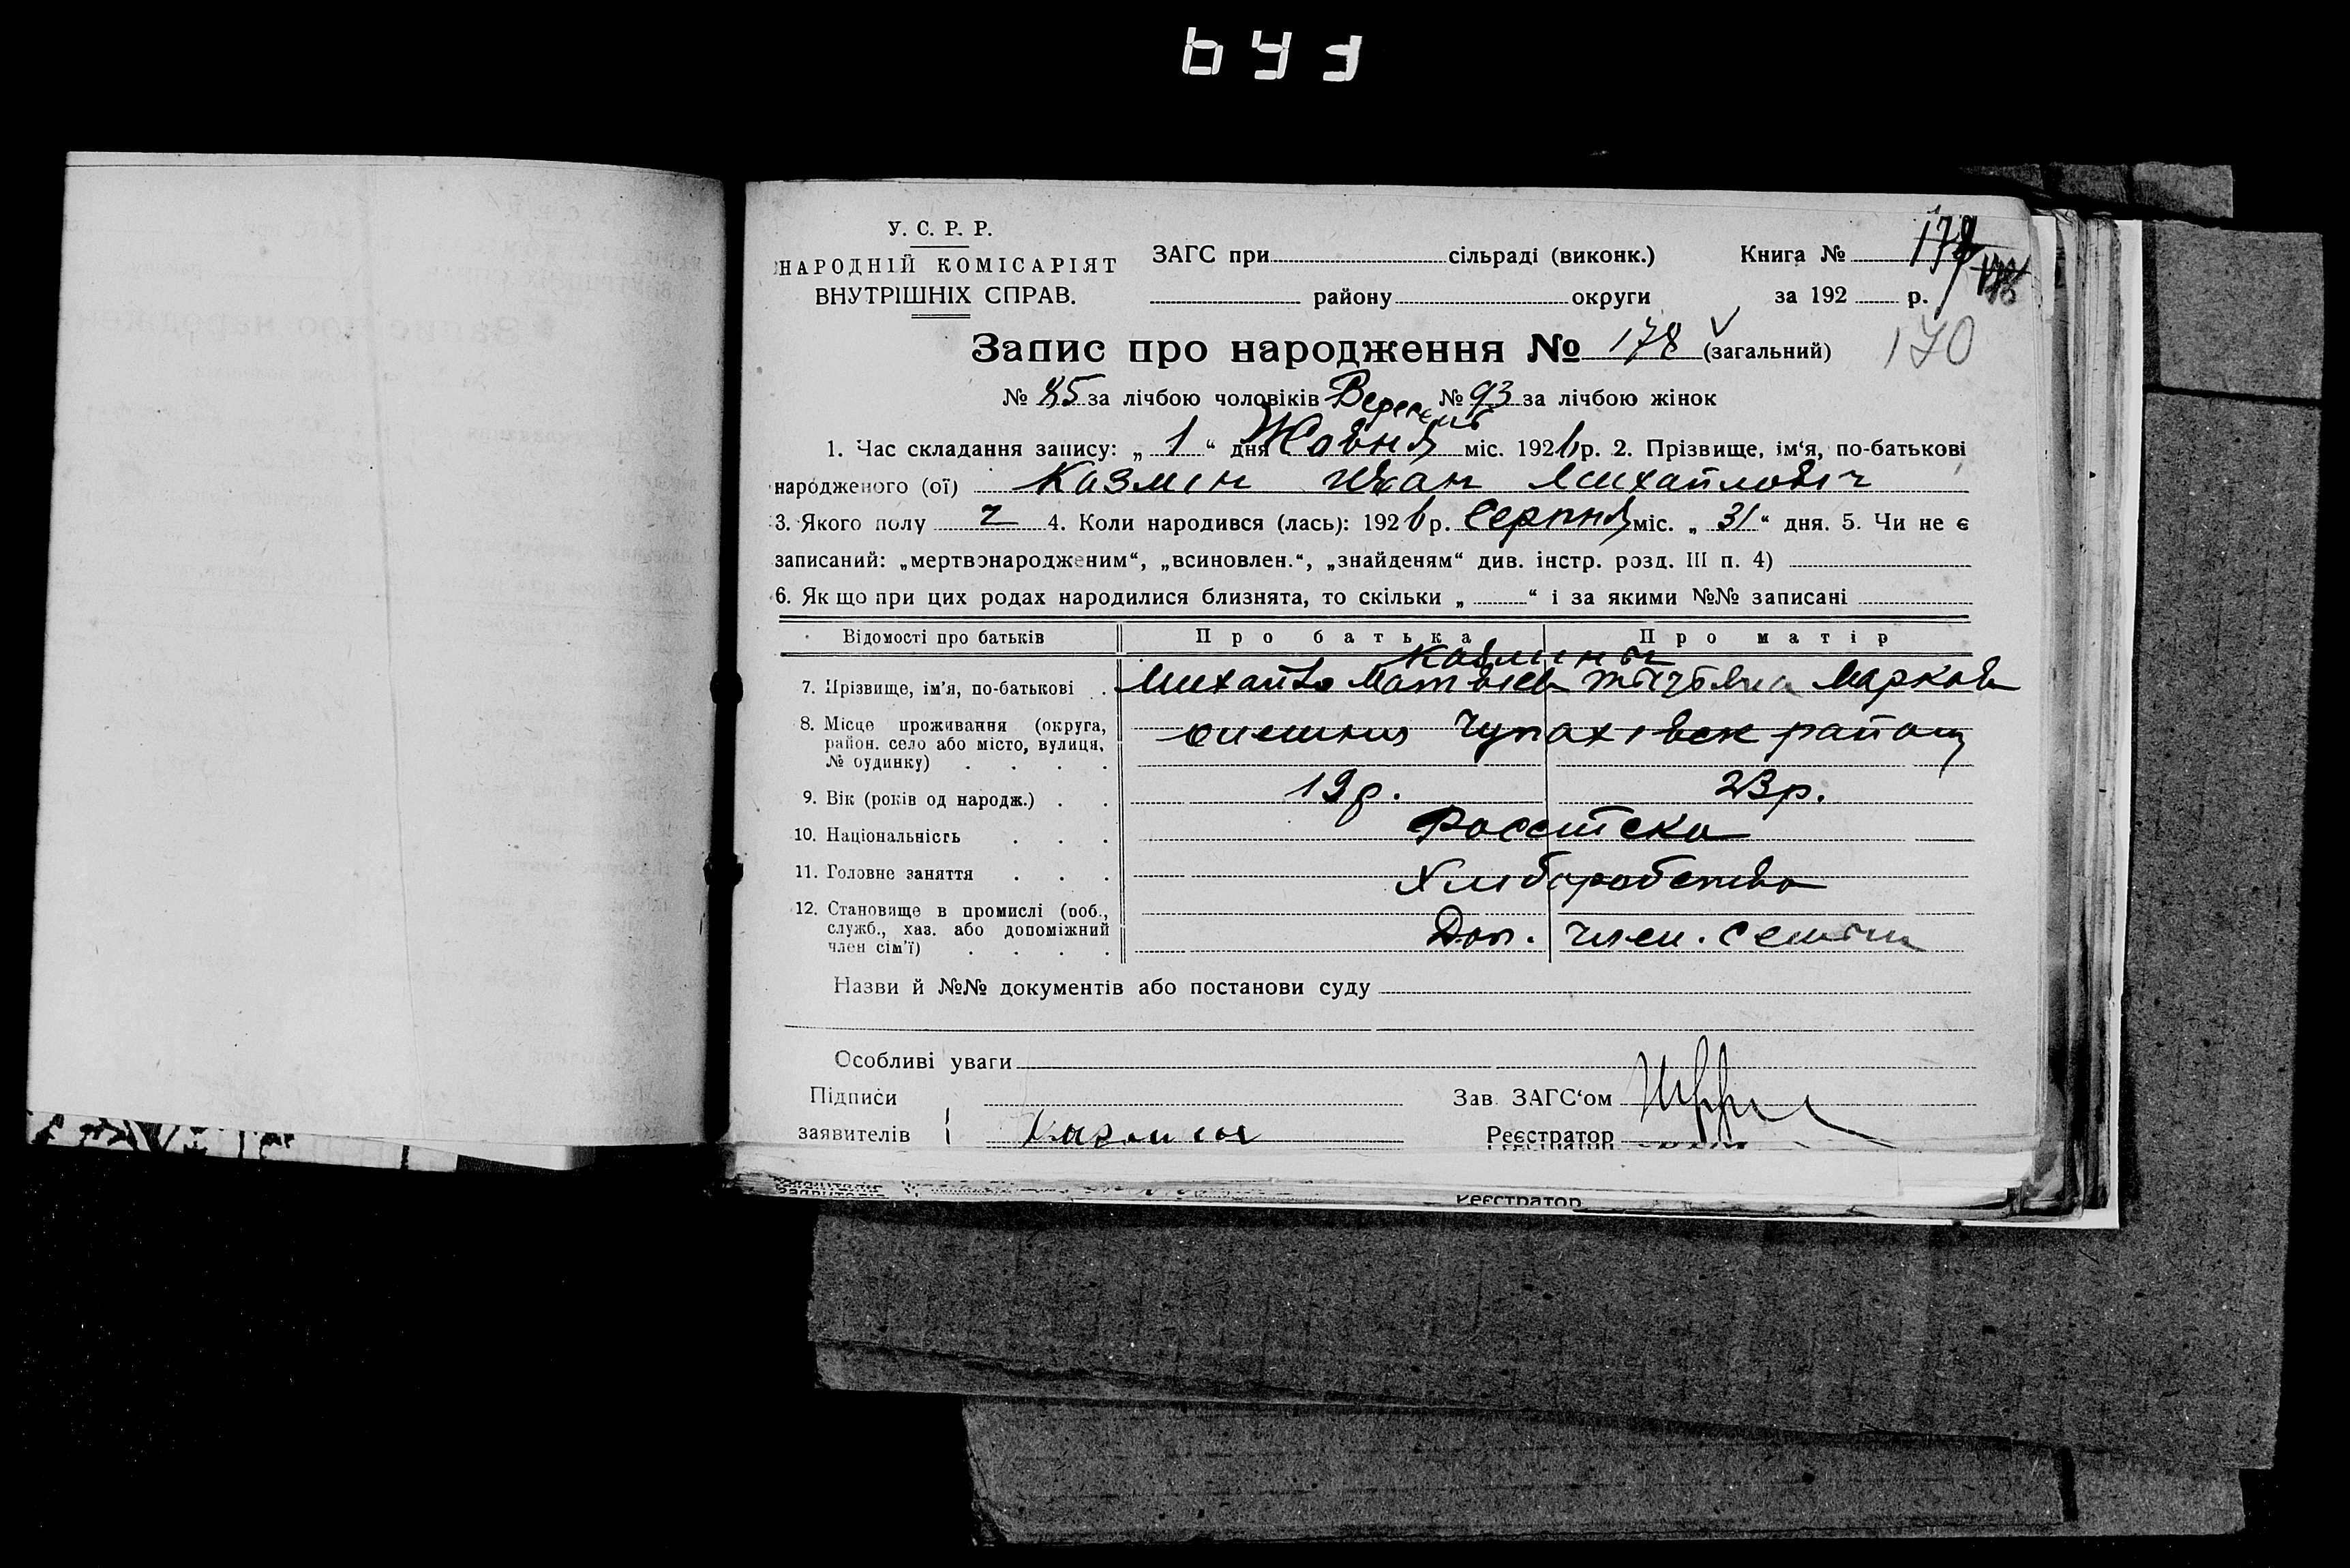 У. С. Р. Р.
НАРОДНІЙ КОМІСАРІЯТ
ВНУТРІШНІХ СПРАВ.
ЗАГС при сільраді (виконк.) Книга №
району округи за 192 р.
170
Запис про народження № 178 (загальний)
№ 85 за лічбою чоловіків № 93 за лічбою жінок
Вересень
1. Час складання запису: „ 1 “ дня Жовня міс. 1926 р. 2. Прізвище, ім‘я, по-батькові
народженого (ої) Казмин Иван Михайлович
3. Якого полу ч 4. Коли народився (лась): 1926 р. Серпня міс. „ 31 “ дня. 5. Чи не є
записаний: „мертвонародженим“, „всиновлен.“, „знайденям“ див. інстр. розд. III п. 4)
6. Як що при цих родах народилися близнята, то скільки „ “ і за якими №№ записані
Відомості про батьків Про батька Про матір
7. Прізвище, ім’я, по-батькові Михайло Матвіев Марков
8. Місце проживання (округа, район. село або місто, вулиця, № будинку) Чупахівск району
9. Вік (років од народж.) 19 р. 23 р.
10. Національність Российска
11. Головне заняття Хлиборобство
12. Становище в промислі (роб., служб., хаз. або допоміжний член сім’ї) Доп. член.
Назви й №№ документів або постанови суду
Особливі уваги
Підписи Зав. ЗАГС‘ом
заявителів Казмин Реєстратор
Реєстратор